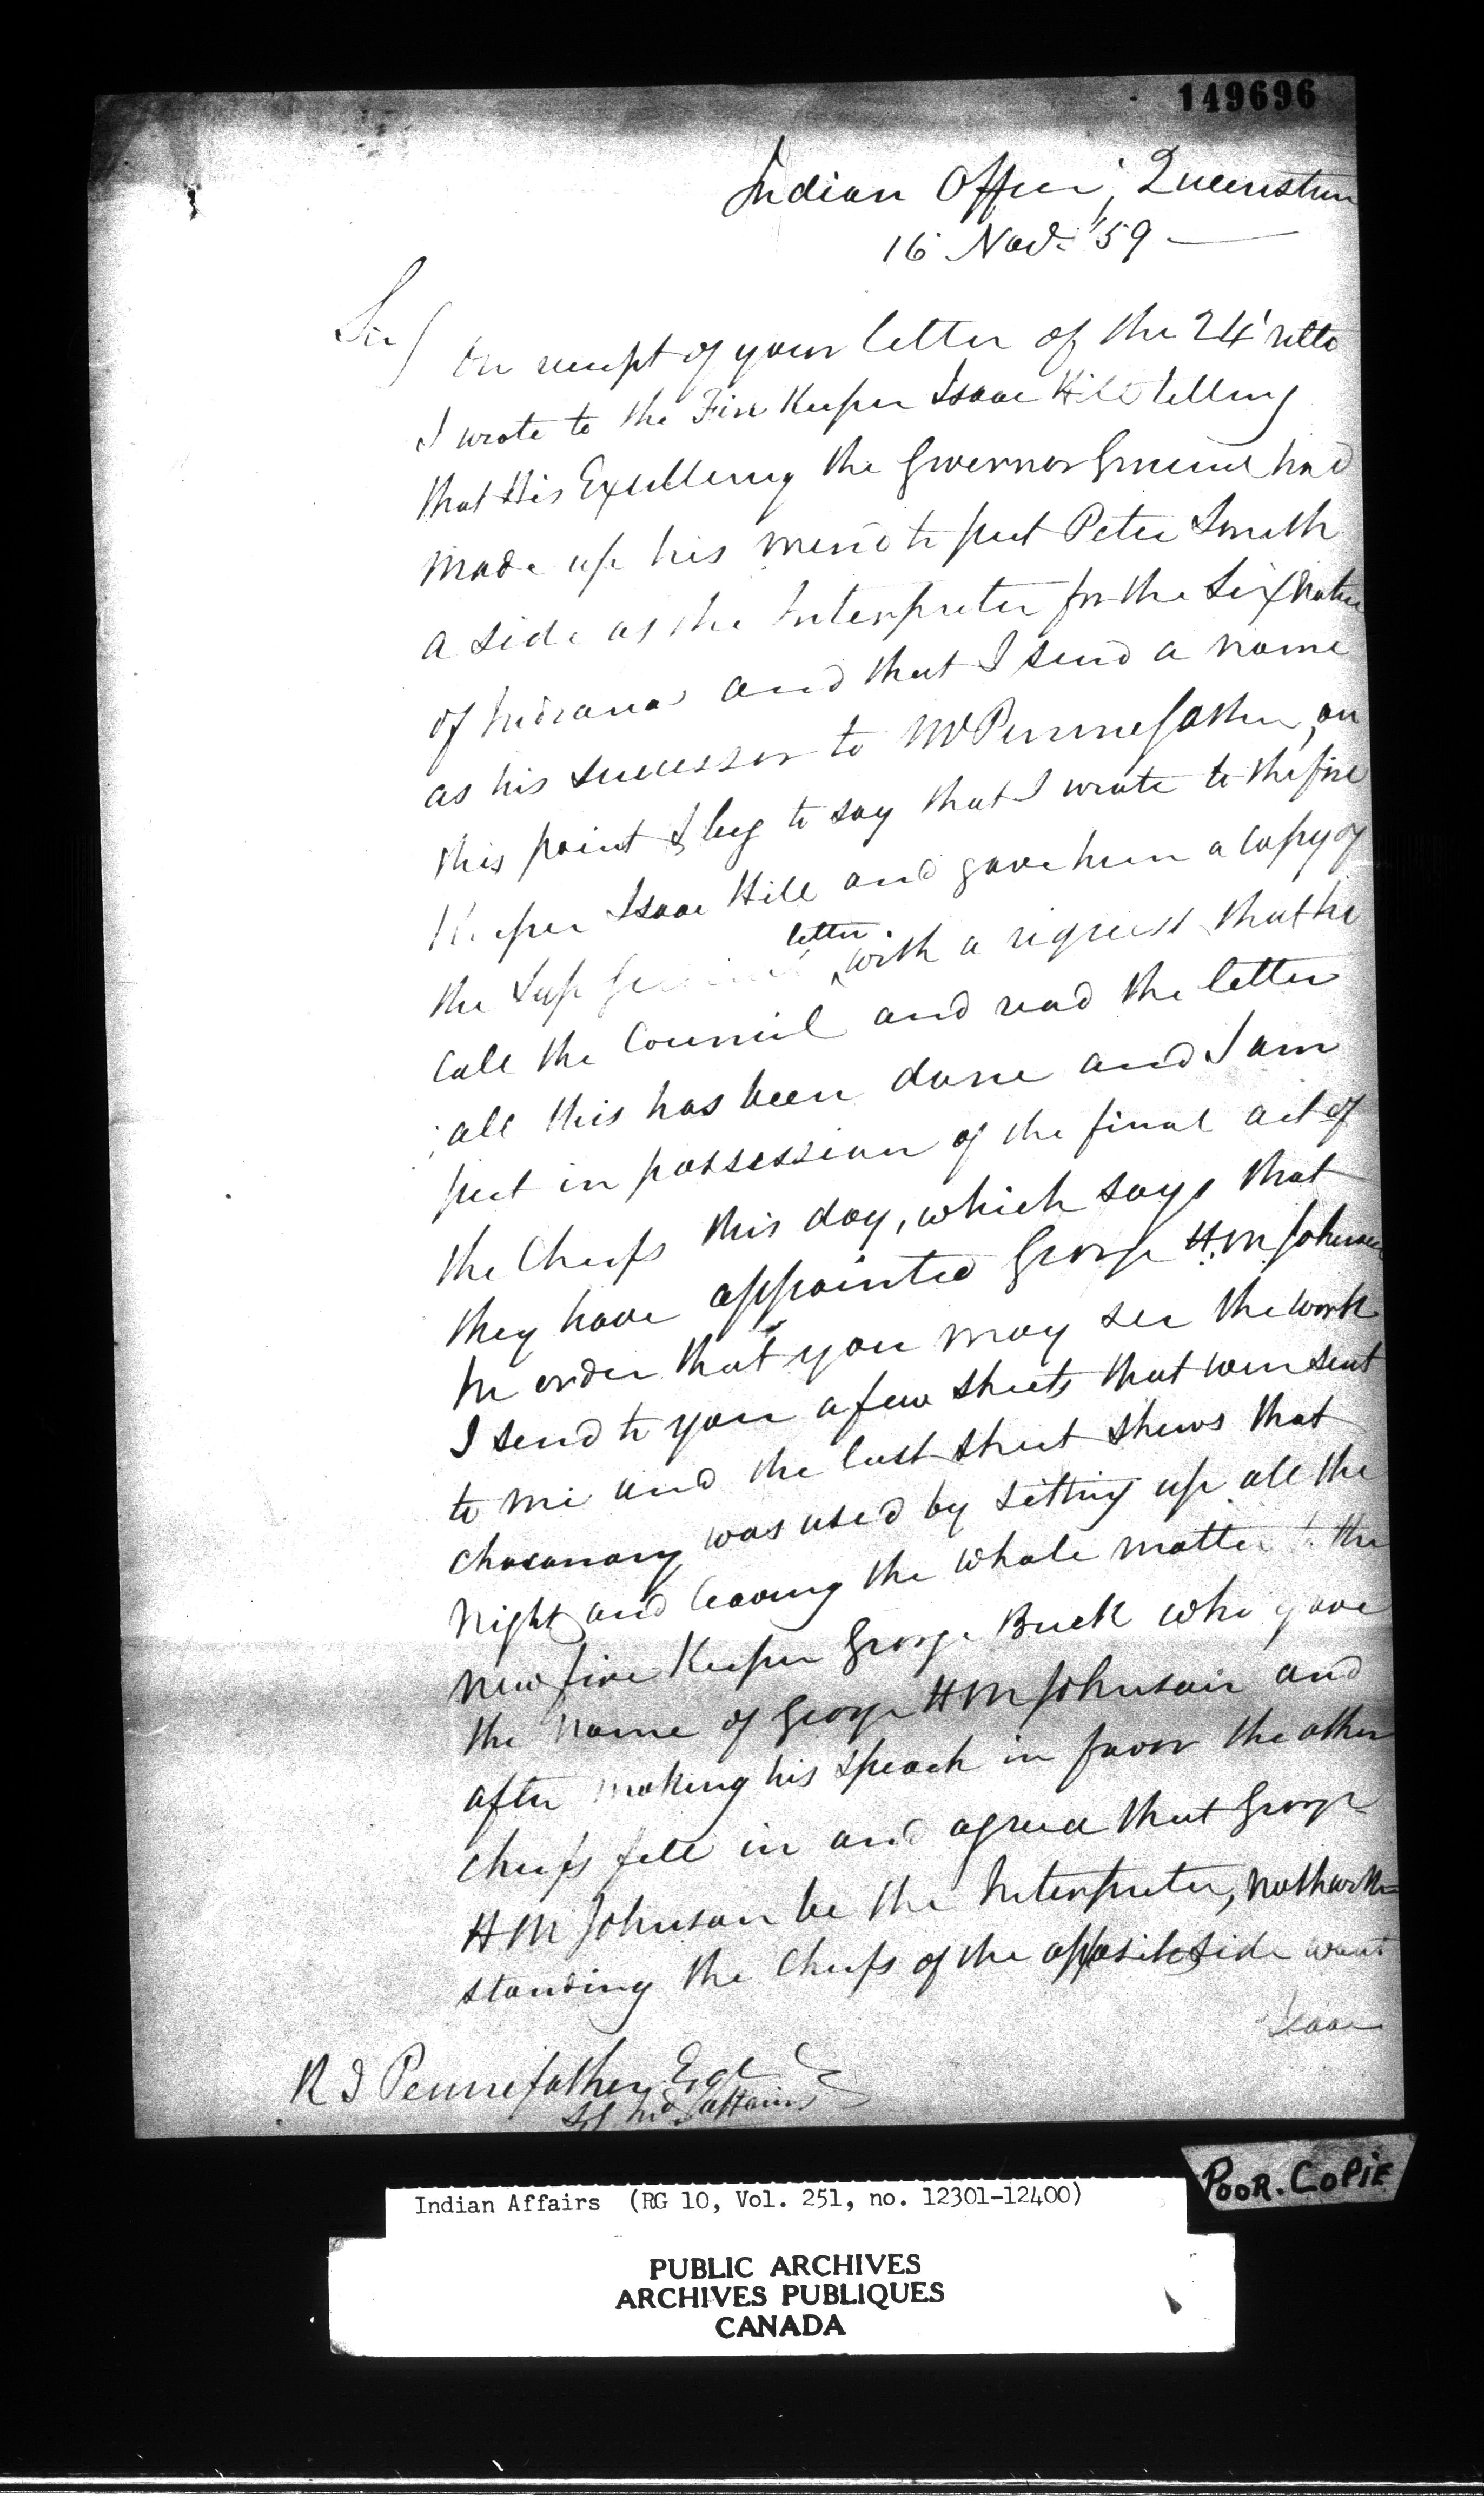 149696
Indian Office, Queenston
16 Nov. '59
Sir/ On receipt of your letter of the 24' ulto
I wrote to the Fire Keeper Isaac Hill telling
that His Excellency the Governor General had
made up his mind to put Peter Smith
a side as the Interpreter for the Six Nation
of Indians and that I send a name
as his successor to Mr Pennefather, on
this point I beg to say that I wrote to the fire
Keeper Isaac Hill and gave him a copy of
letter.
the Sup General with a request that he
call the Council and read the letter
; all this has been done and I am
put in possession of the final act of
the Chiefs this day, which says that
they have appointed George H.M. Johnson
In order that you may see the work
I send to you a few sheets that were sent
to me and the last sheet shews that
was used by sitting up all the
night and leaving the whole matter the
new fire Keeper George Buck who gave
the name of George H M Johnson and
after making his speach in favor the other
chiefs fell in and agreed that George
H M Johnson be the Interpreter, notwith-
standing the Chiefs of the opposite side want
Isaac
R J Pennefather Esqe
S G Ind Affairs
POOR. COPIE
Indian Affairs (RG 10, Vol. 251, no. 12301-12400)
PUBLIC ARCHIVES
ARCHIVES PUBLIQUES
CANADA